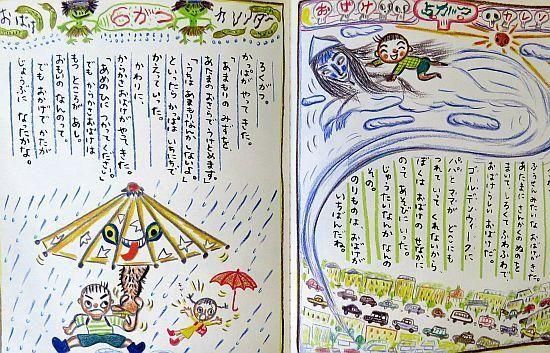 おばけ 6がつ カレンダー
ろくがつ。
かっぱが やってきた。
あまもりの みずを
あたまの おさらで うけとめます。
「うちは あまもりなんか しないよ。」
といったら かっぱは いちにちで
かえっていった。
かわりに、
からかさおばけが やってきた。
「あめのひに つかってください。」
でも からかさおばけは
もつ ところが あし。
おもいの なんのって。
でも おかげで かたが
じょうぶに なたかな。
おばけ 5がつ カレン
ふうせんみたいな おばけがきた。
あたまに さんかくの ぬのを
まいて、しろくて ふわふわで
らしい おばけだ。
ゴールデンウィークに
パパと ママが どこにも
つれていって くれないから
ぼくは おばけの せなかに
のって あそびに いった。
じゅうたいなんか なんの
その。
のりものは おばけが
いちばんだね。